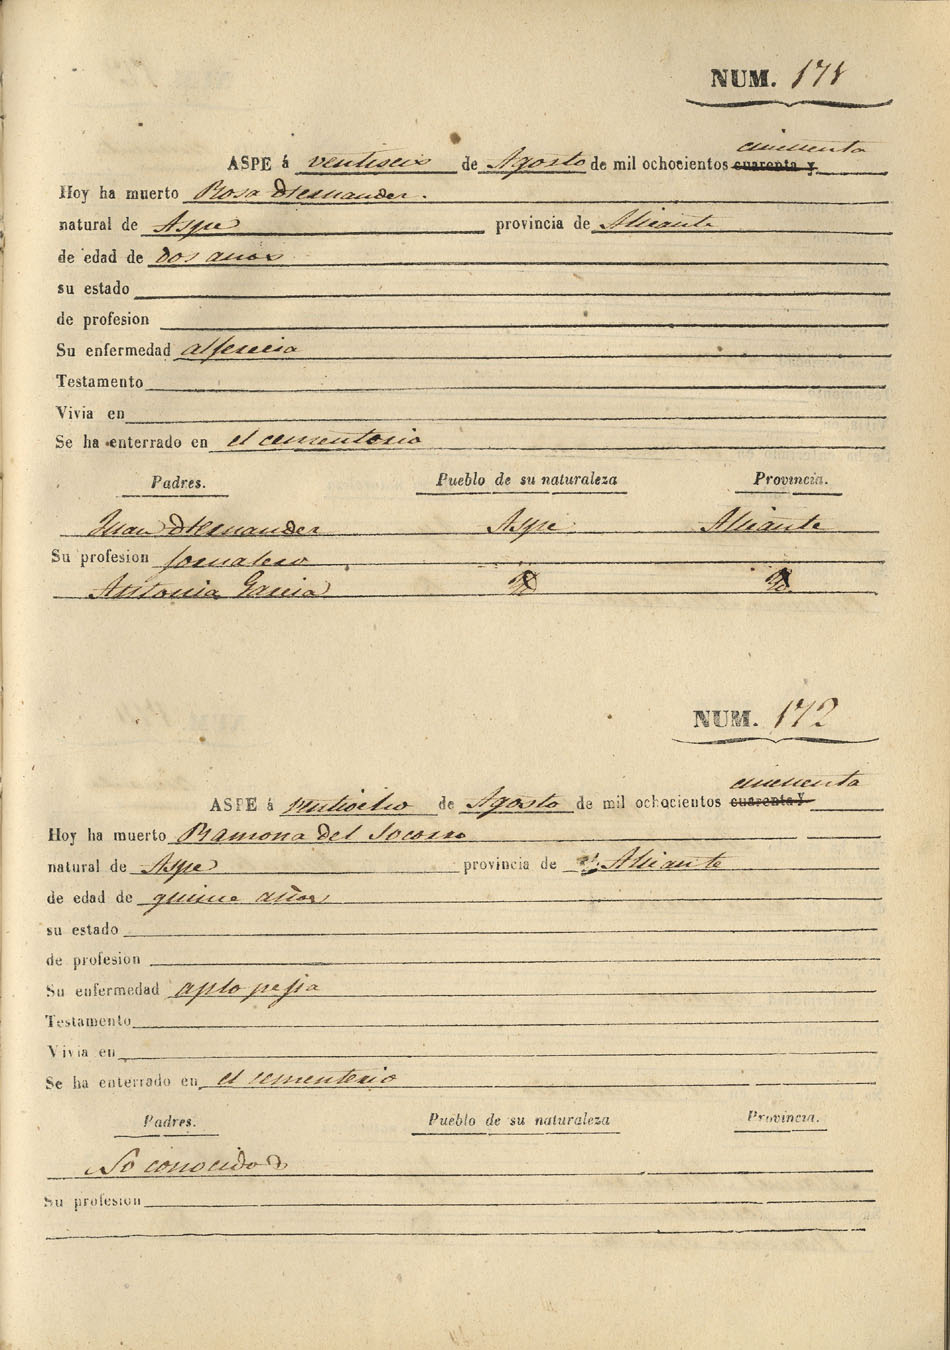 NUM. 171
cincuenta
ASPE á ventiseis de Agosto de mil ochocientos cuarenta y
Hoy ha muerto Rosa Hernander.
natural de Aspe provincia de Alicante
de edad de dos años
su estado
de profesion
Su enfermedad alferecia
Testamento
Vivia en
Se ha enterrado en el cementerio
Padres. Pueblo de su naturaleza Provincia.
Juan Hernander Aspe Alicante
Su profesion jornalero
Antonia Garcia
NUM. 172
cincuenta
ASPE á ventiocho de Agosto de mil ochocientos cuarenta y
Hoy ha muerto Ramona del Socorro
natural de Aspe provincia de Alicante
de edad de quince años
su estado
de profesion
Su enfermedad aplopegia
Testamento
Vivia en
Se ha enterrado en el cementerio
Padres. Pueblo de su naturaleza Provincia.
No conocidos
Su profesion